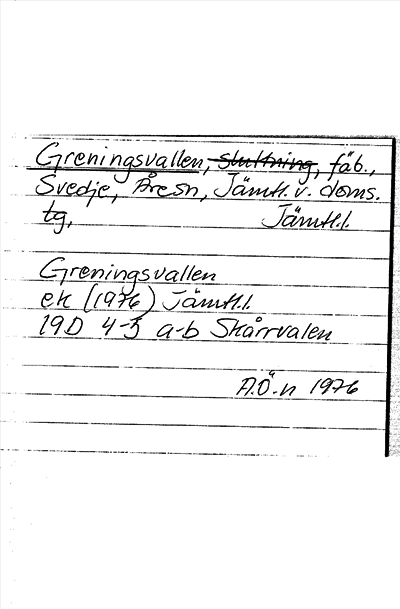 Greningsvallen, sluttning, fäb.,
Svedje, Åresn, Jämtl. v. doms.
tg, Jämtl.l.
Greningsvallen
ek (1976) Jämtl.l.
19D 4-5 a-b Skårrvalen
A.Ö-n 1976